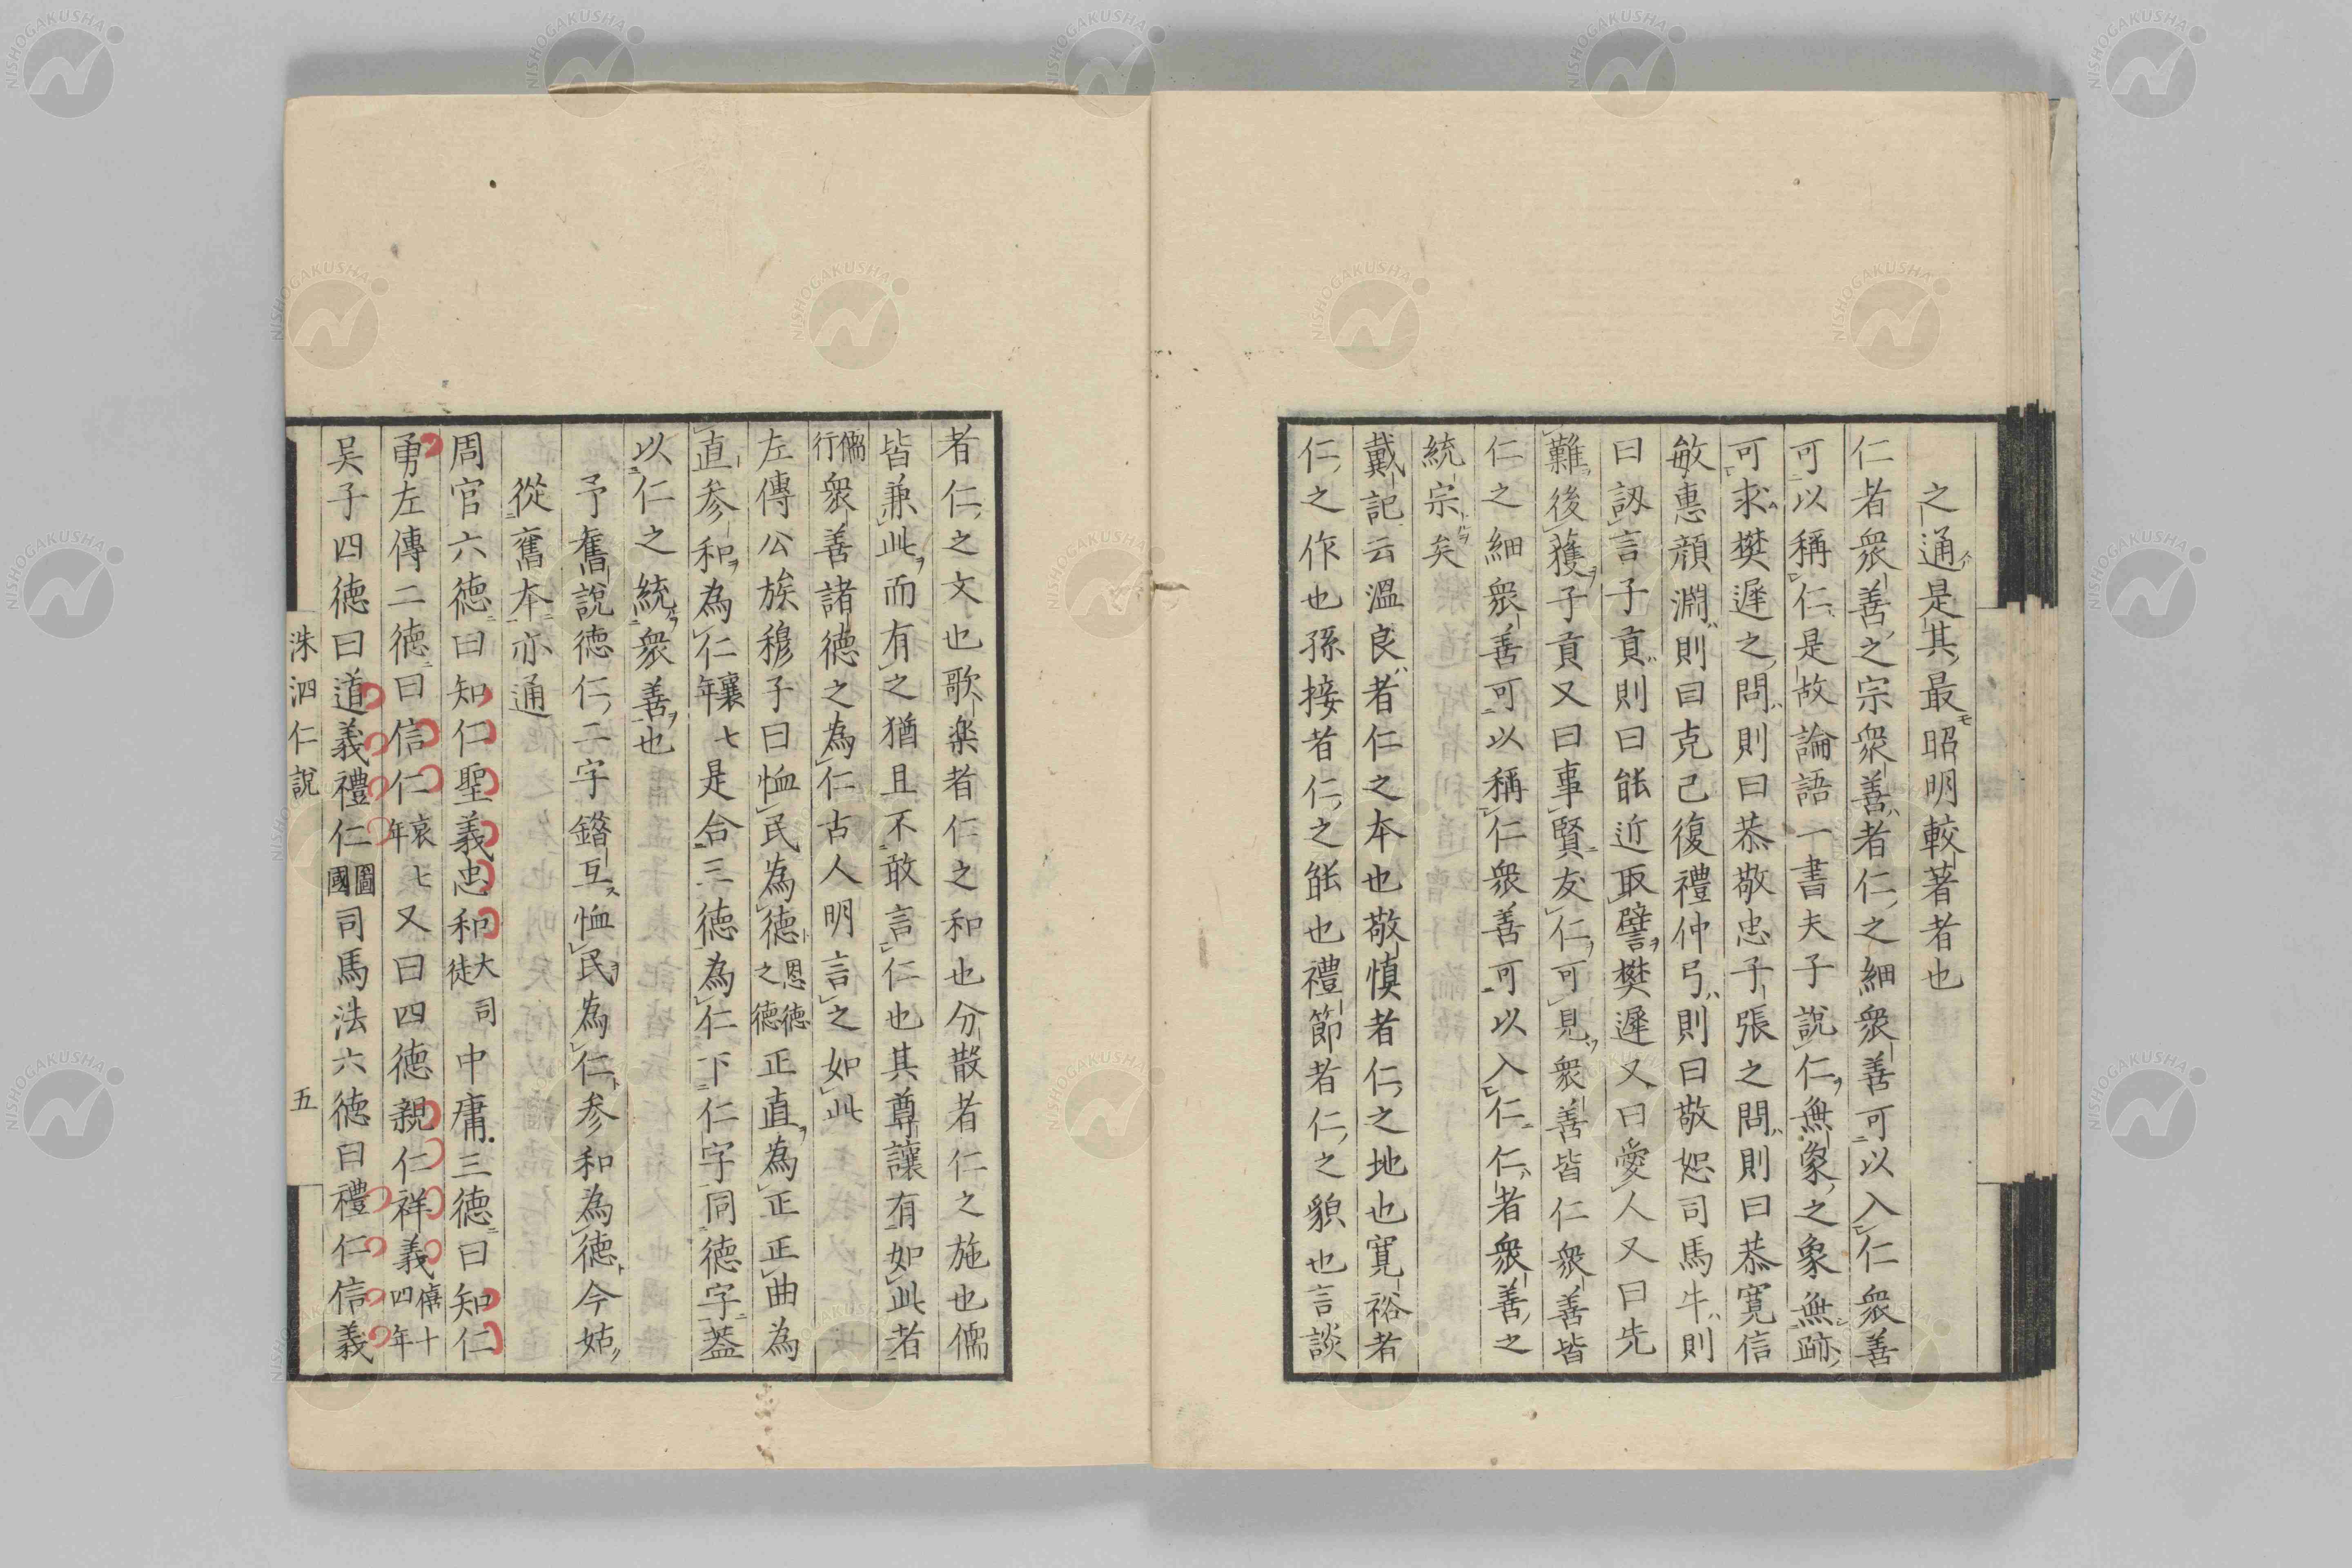 之通是其最昭明較著者也
仁者衆善之宗衆善者仁之細衆善可以入仁衆善
可以稱仁是故論語一書夫子說仁無象之象無跡
可求樊遲之問則曰恭敬忠子張之問則曰恭寬信
敏惠顏淵則曰克己復禮仲弓則曰敬恕司馬牛則
曰訒言子貢則曰能近取譬樊遲又曰愛人又曰先
難後獲子貢又曰事賢友仁可見衆善皆仁衆善皆
仁之細衆善可以稱仁衆善可以入仁仁者衆善之
統宗矣
戴記云溫良者仁之本也敬慎者仁之地也寬裕者
仁之作也孫接者仁之能也禮節者仁之貌也言談
者仁之文也歌樂者仁之和也分散者仁之施也儒
皆兼此而有之猶且不敢言仁也其尊讓有如此者
儒行衆善諸德之為仁古人明言之如此
左傳公族穆子曰恤民為德恩德之德正直為正正曲為
直參和為仁襄七年是合三德為仁下仁字同德字蓋
以仁之統衆善也
予舊說德仁二字錯互恤民為仁參和為德今姑
從舊本亦通
周官六德曰知仁聖義忠和大司徒中庸三德曰知仁
勇左傳二德曰信仁哀七年又曰四德親仁祥義僖十四年
吴子四德曰道義禮仁圖國司馬法六德曰禮仁信義
洙泗仁說 五
NISHOGAKUSHA